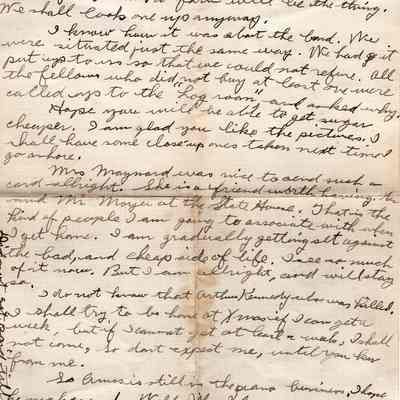 will be the thing.
We shall look one up anyway.
I know how it was about the bond. We
were situated just the same way. We had it
put up to us so that we could not refuse. All
the fellows who did not buy at least one were
called up to the "Log room" and asked why.
Hope you will be able to get sugar
cheaper. I am glad you like the pictures. I
shall have some close ups taken next time I
go ashore.
Mrs Maynard was nice to send such a
card allright. She is a friend worth having. Then
and Mr. Moyer at the State House. That is the
kind of people I am going to associate with when
I get home. I am gradually getting set against
the bad, and cheap side of life. I see so much
of it now. But I am allright, and will stay
so.
I do not know that Arthur Kennedy who was killed.
I shall try to be home at Xmas if I can get a
week, but if I cannot get at least a week, I shall
not come, So dont expect me, until you hear
from me.
So Amos is still in the piano business, I hope